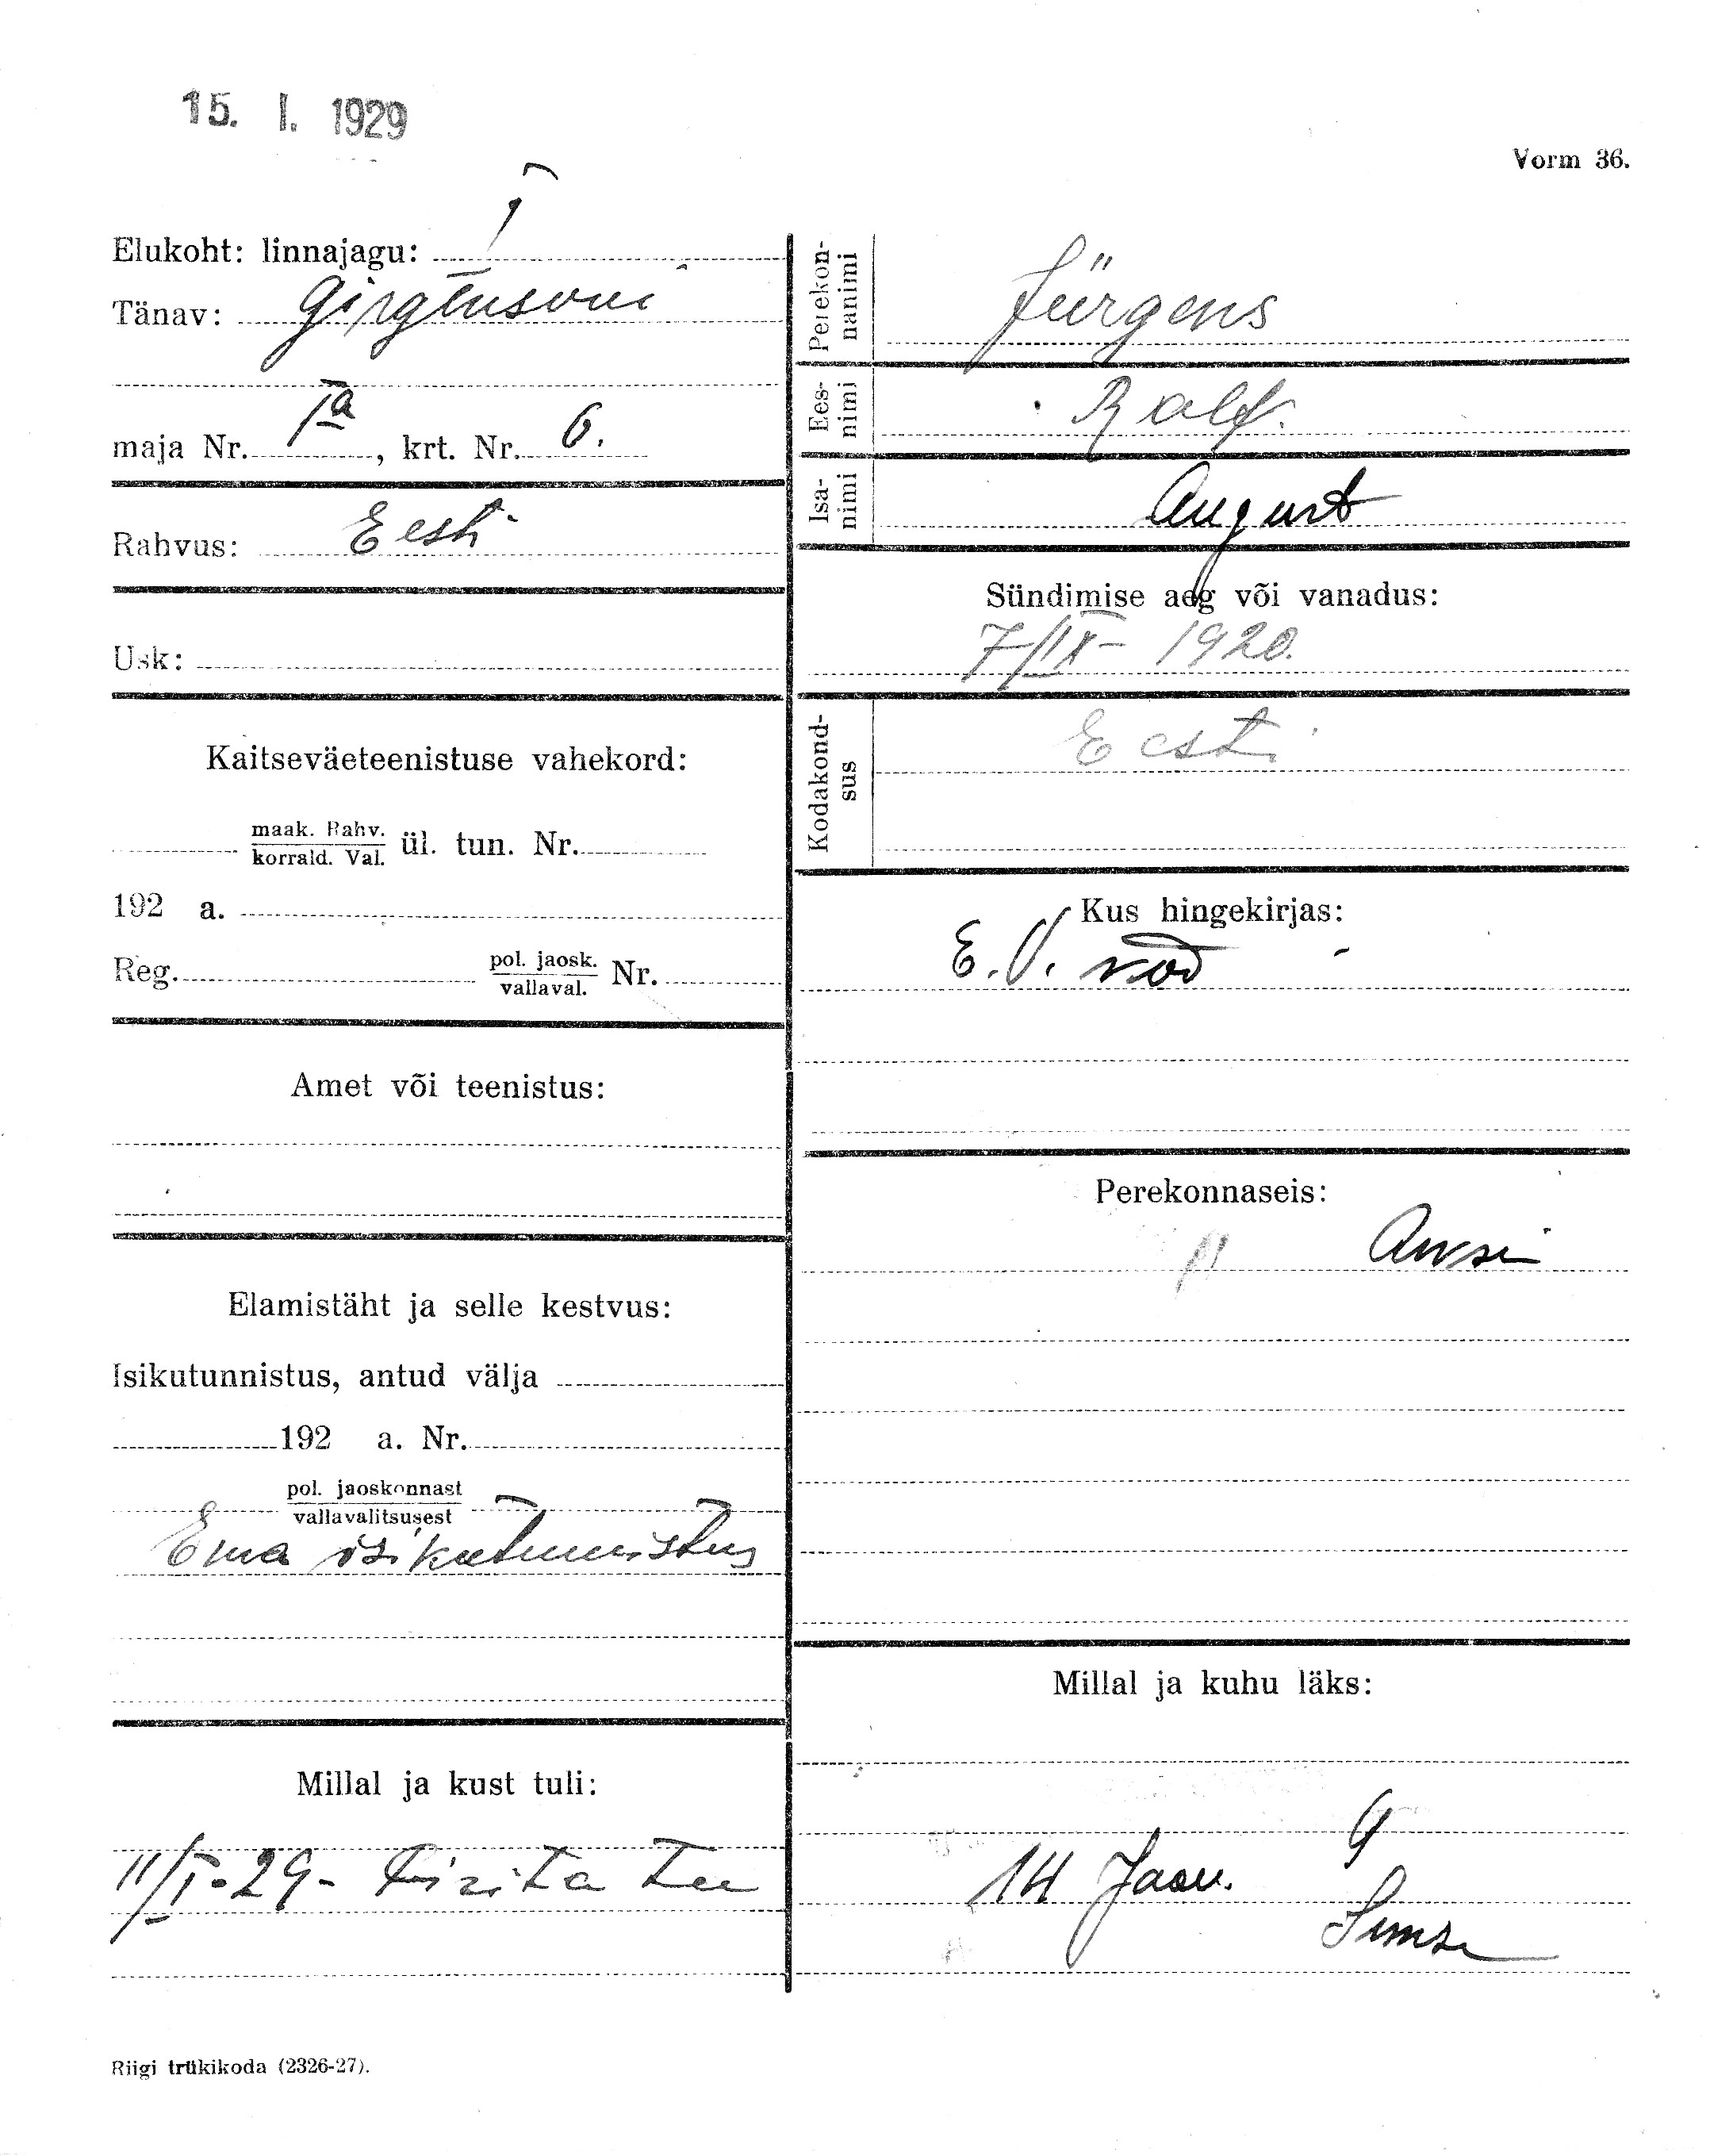 15. I. 1929
Vorm 36.
Elukoht: linnajagu: I
Tänav: Girgensoni
maja Nr. 1a, krt. Nr. 6.
Rahvus: Eesti
Usk:
Kaitseväeteenistuse vahekord:
maak. Rahv.
korrald. Val. ül. tun. Nr.
192 a.
Reg. pol. jaosk.
vallaval. Nr.
Amet või teenistus:
Elamistäht ja selle kestvus:
Isikutunnistus, antud välja
192 a. Nr.
pol. jaoskonnast
vallavalitsusest
Ema isikutunnistus
Millal ja kust tuli:
11/I-29-
Perekon-
nanimi
Jürgens
Ees-
nimi
Ralf.
Isa-
nimi
August
Sündimise aeg või vanadus:
7/IX- 1920.
Kodakond-
sus
Eesti
Kus hingekirjas:
E.V.
Perekonnaseis:
Millal ja kuhu läks:
14 Jaan.
Riigi trükikoda (2326-27).